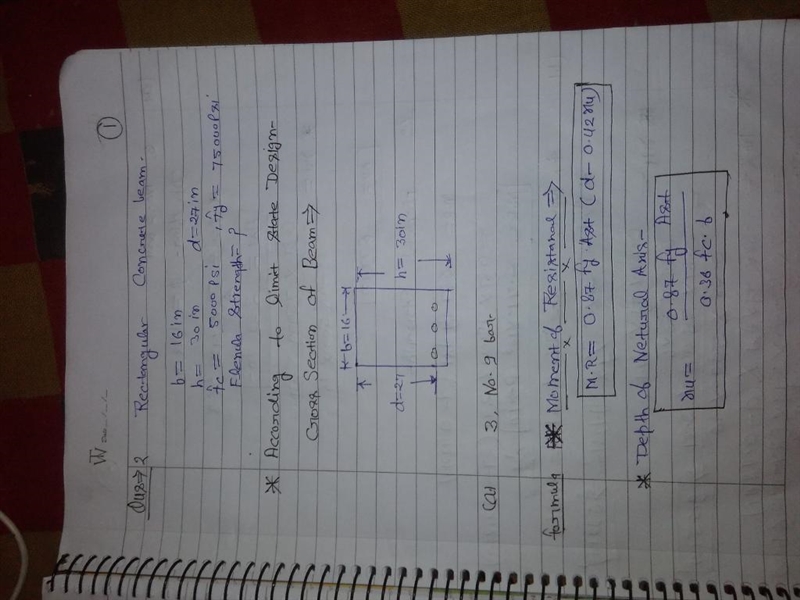 1
Ques→2 Rectangular Concrete beam.
b = 16 in
h = 30 in d = 27 in
fc = 5000 Psi , fy = 75000 Psi
Flexula Strength = ?
* According to limit State Design-
Cross Section of Beam ⇒
b=16
d=27
h = 30in
(a) 3, No. 9 bar.
formula * Moment of Resistanal ⇒
M.R = 0.87 fy Ast (d - 0.42 xu)
* Depth of Netural Axis-
xu = 0.87 fy Ast
0.36 fc. b